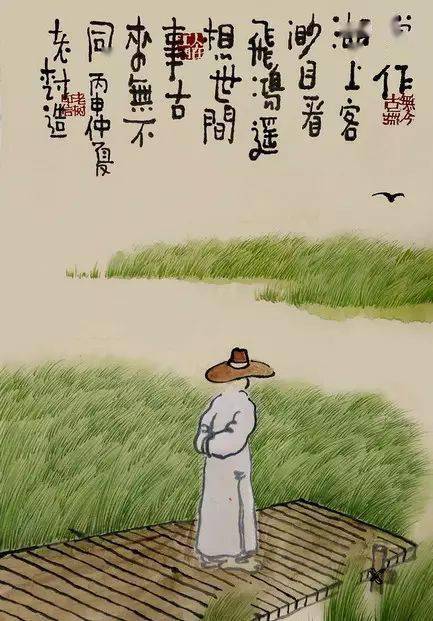 作
湖上客
渺目看
飛鴻遙
想世間
事古
來無不
同 丙申仲夏
老樹造